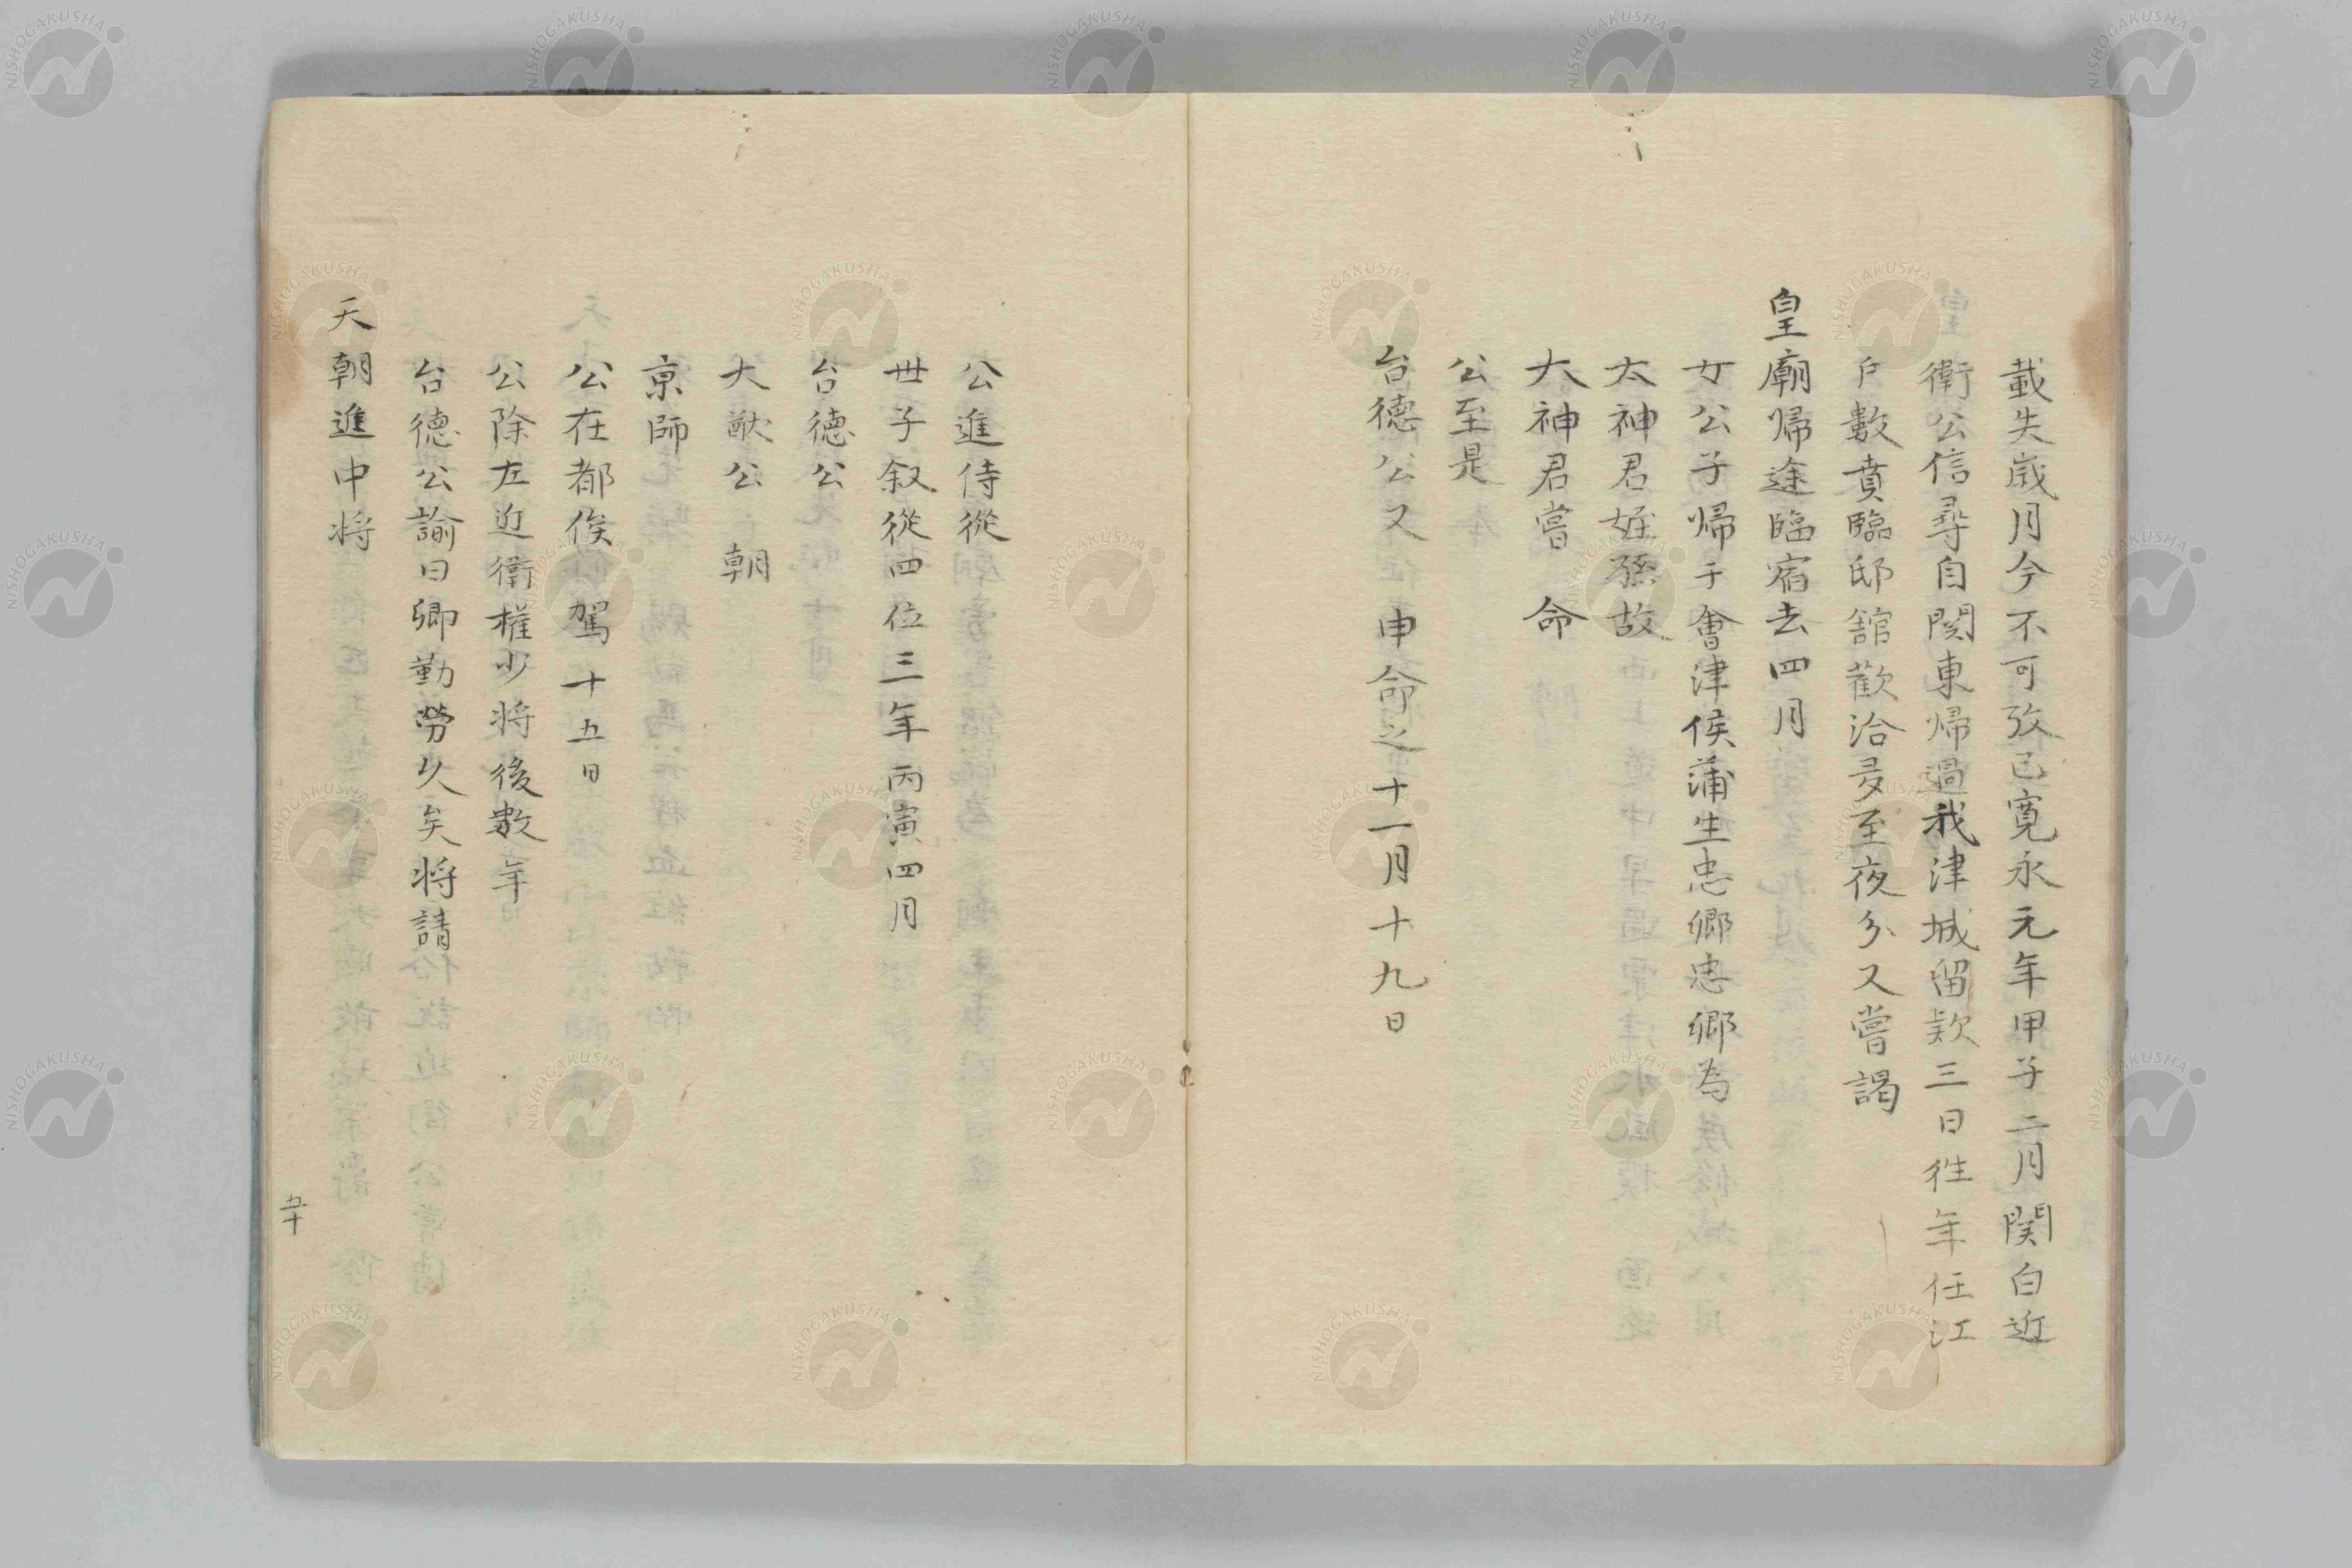 載失歳月今不可攷已寛永元年甲子二月関白近
衛公信尋自関東帰過我津城留欵三日徃年任江
戸數賁臨邸舘歡洽多至夜分又嘗謁
皇廟帰途臨宿去四月
女公子帰于會津侯蒲生忠郷忠郷為
太神君姪孫故
大神君嘗 命
公至是
台德公又 申命之十一月十九日
公進侍從
世子叙從四位三年丙寅四月
台德公
大猷公 朝
京師
公在都俟 駕十五日
公除左近衛權少将後數年
台德公諭曰卿勤勞久矣将請
天朝進中将
五十
NISHOGAKUSHA